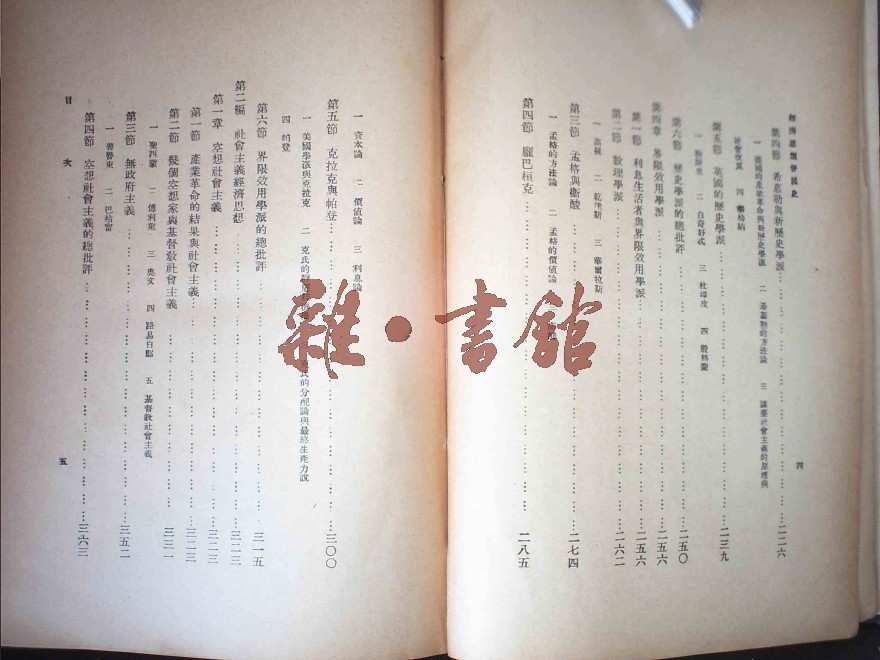 經濟思想發展史
四
第四節 希慕勒與新歷史學派……二二六
一 德國的產業革命與新歷史學派 二 希慕勒的方法論 三 講壇社會主義的原理與
社會政策 四 華格納
第五節 英國的歷史學派……二三九
二 白奇好忒 三 杜印皮 四 殷格蘭
第六節 歷史學派的總批評……二五〇
第四章 界限效用學派……二五六
第一節 利息生活者與界限效用學派……二五六
第二節 數理學派……二六二
一 高襄 二 乾芬斯 三 華爾拉斯
第三節 孟格與衛酸……二七四
一 孟格的方法論 二 孟格的價值論
第四節 龐巴桓克……二八五
一 資本論 二 價值論 三 利息論
第五節 克拉克與帕登……三〇〇
一 美國學派與克拉克 二 克氏的 克氏的分配論與最終生產力說
四 帕登
第六節 界限效用學派的總批評……三一五
第二編 社會主義經濟思想……三二三
第一章 空想社會主義……三二三
第一節 產業革命的結果與社會主義……三二三
第二節 幾個空想家與基督教社會主義……三三一
一 聖西蒙 二 傅利葉 三 奧文 四 路易白郎 五 基督教社會主義
第三節 無政府主義……三五二
一 普魯東 二 巴枯寧
第四節 空想社會主義的總批評……三六三
目次
五
雜·書館